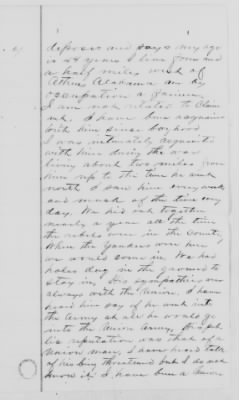 deposes and says my age
is 44 years I live four and
a half miles west of
Athens Alabama am by
occupation a farmer
I am not related to Claim
ant. I have been acquain
with him since boyhood
I was intimately acquainted
with him during the war
living about two miles from
him up to the time he went
north I saw him every week
and much of the time every
day. We hid out together
nearly a year all the time
the rebels were in the County
When the Yankees were here
we would come in. We had
holes dug in the ground to
stay in. His sympathies were
always with the Union. I have
heard him say if he went into
the Army at all he would go
into the Union Army,
his reputation was that of a
Union man, I have heard talk
of his being threatened but I do not
know it. I have been a Union